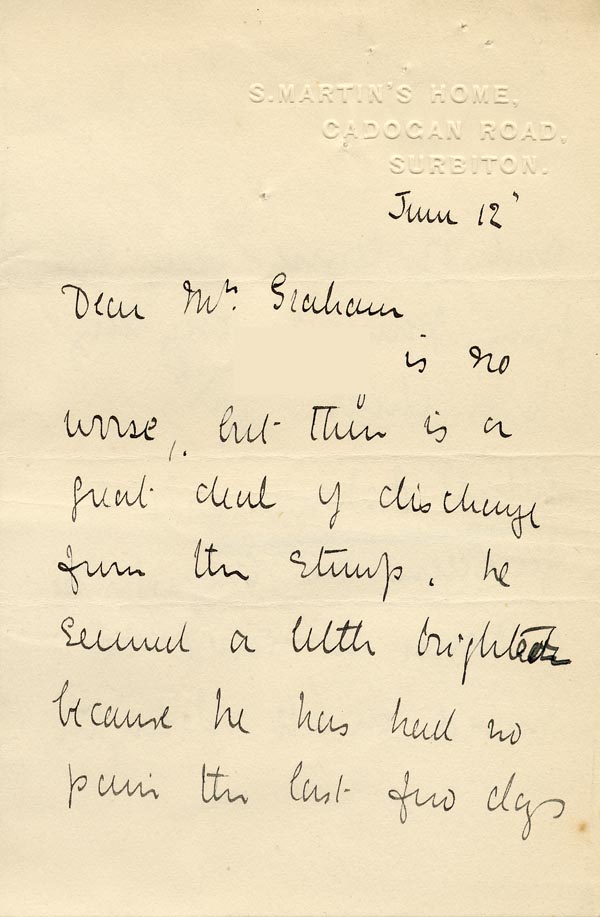 S. MARTIN'S HOME,
CADOGAN ROAD,
SURBITON.
June 12
Dear Mr. Graham
is no
worse, but there is a
great deal of discharge
from the stump. he
seemed a little brighter
because he has had no
pain the last few days